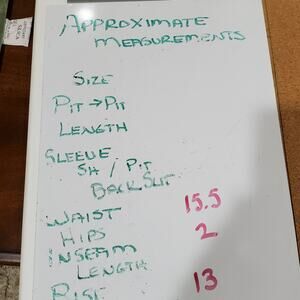 APPROXIMATE
MEASUREMENTS
SIZE
PIT → PIT
LENGTH
SLEEVE
SH / PIT
BACK SLIT
WAIST 15.5
HIPS 2
INSEAM
LENGTH 13
RISE